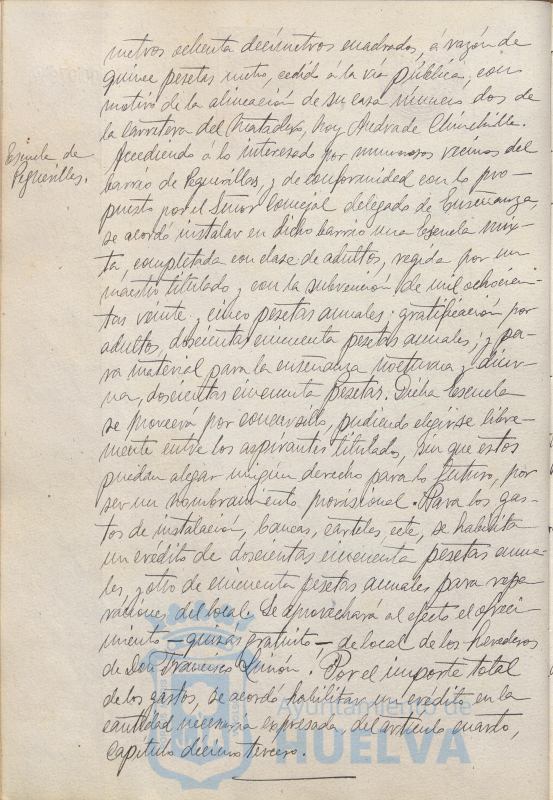 metros ochenta decímetros cuadrados, á razón de
quince pesetas metro, cedido á la vía pública, con
motivo de la alineación de su casa número dos de
la carretera del Matadero, hoy Andrade Chinchilla.
Escuela de
Peguerillas.
Accediendo á lo interesado por numerosos vecinos del
barrio de Peguerillas, y de conformidad con lo pro-
puesto por el Señor Concejal delegado de Enseñanza,
se acordó instalar en dicho barrio una Escuela mix-
ta, completada con clase de adultos, regida por un
maestro titulado y con la subvención de mil ochocien-
tas veinte y cinco pesetas anuales; gratificación por
adultos, doscientas cincuenta pesetas anuales; y pa-
ra material para la enseñanza nocturna y diur-
na, doscientas cincuenta pesetas. Dicha Escuela
se proveerá por concursillo, pudiendo elegirse libre-
mente entre los aspirantes titulados, sin que estos
puedan alegar ningún derecho para lo futuro, por
ser un nombramiento provisional. Para los gas-
tos de instalación, bancas, carteles, ecte, se habilita
un credito de doscientas cincuenta pesetas anua-
les, y otro de cincuenta pesetas anuales para repa-
raciones del local. Se aprovechará al efecto el ofreci-
miento — quizás gratuito — de local de los herederos
de Don Francisco Limón. Por el importe total
de los gastos, se acordó habilitar un credito en la
cantidad necesaria expresada, del artículo cuarto,
capítulo décimo tercero.
Ayuntamiento de
HUELVA